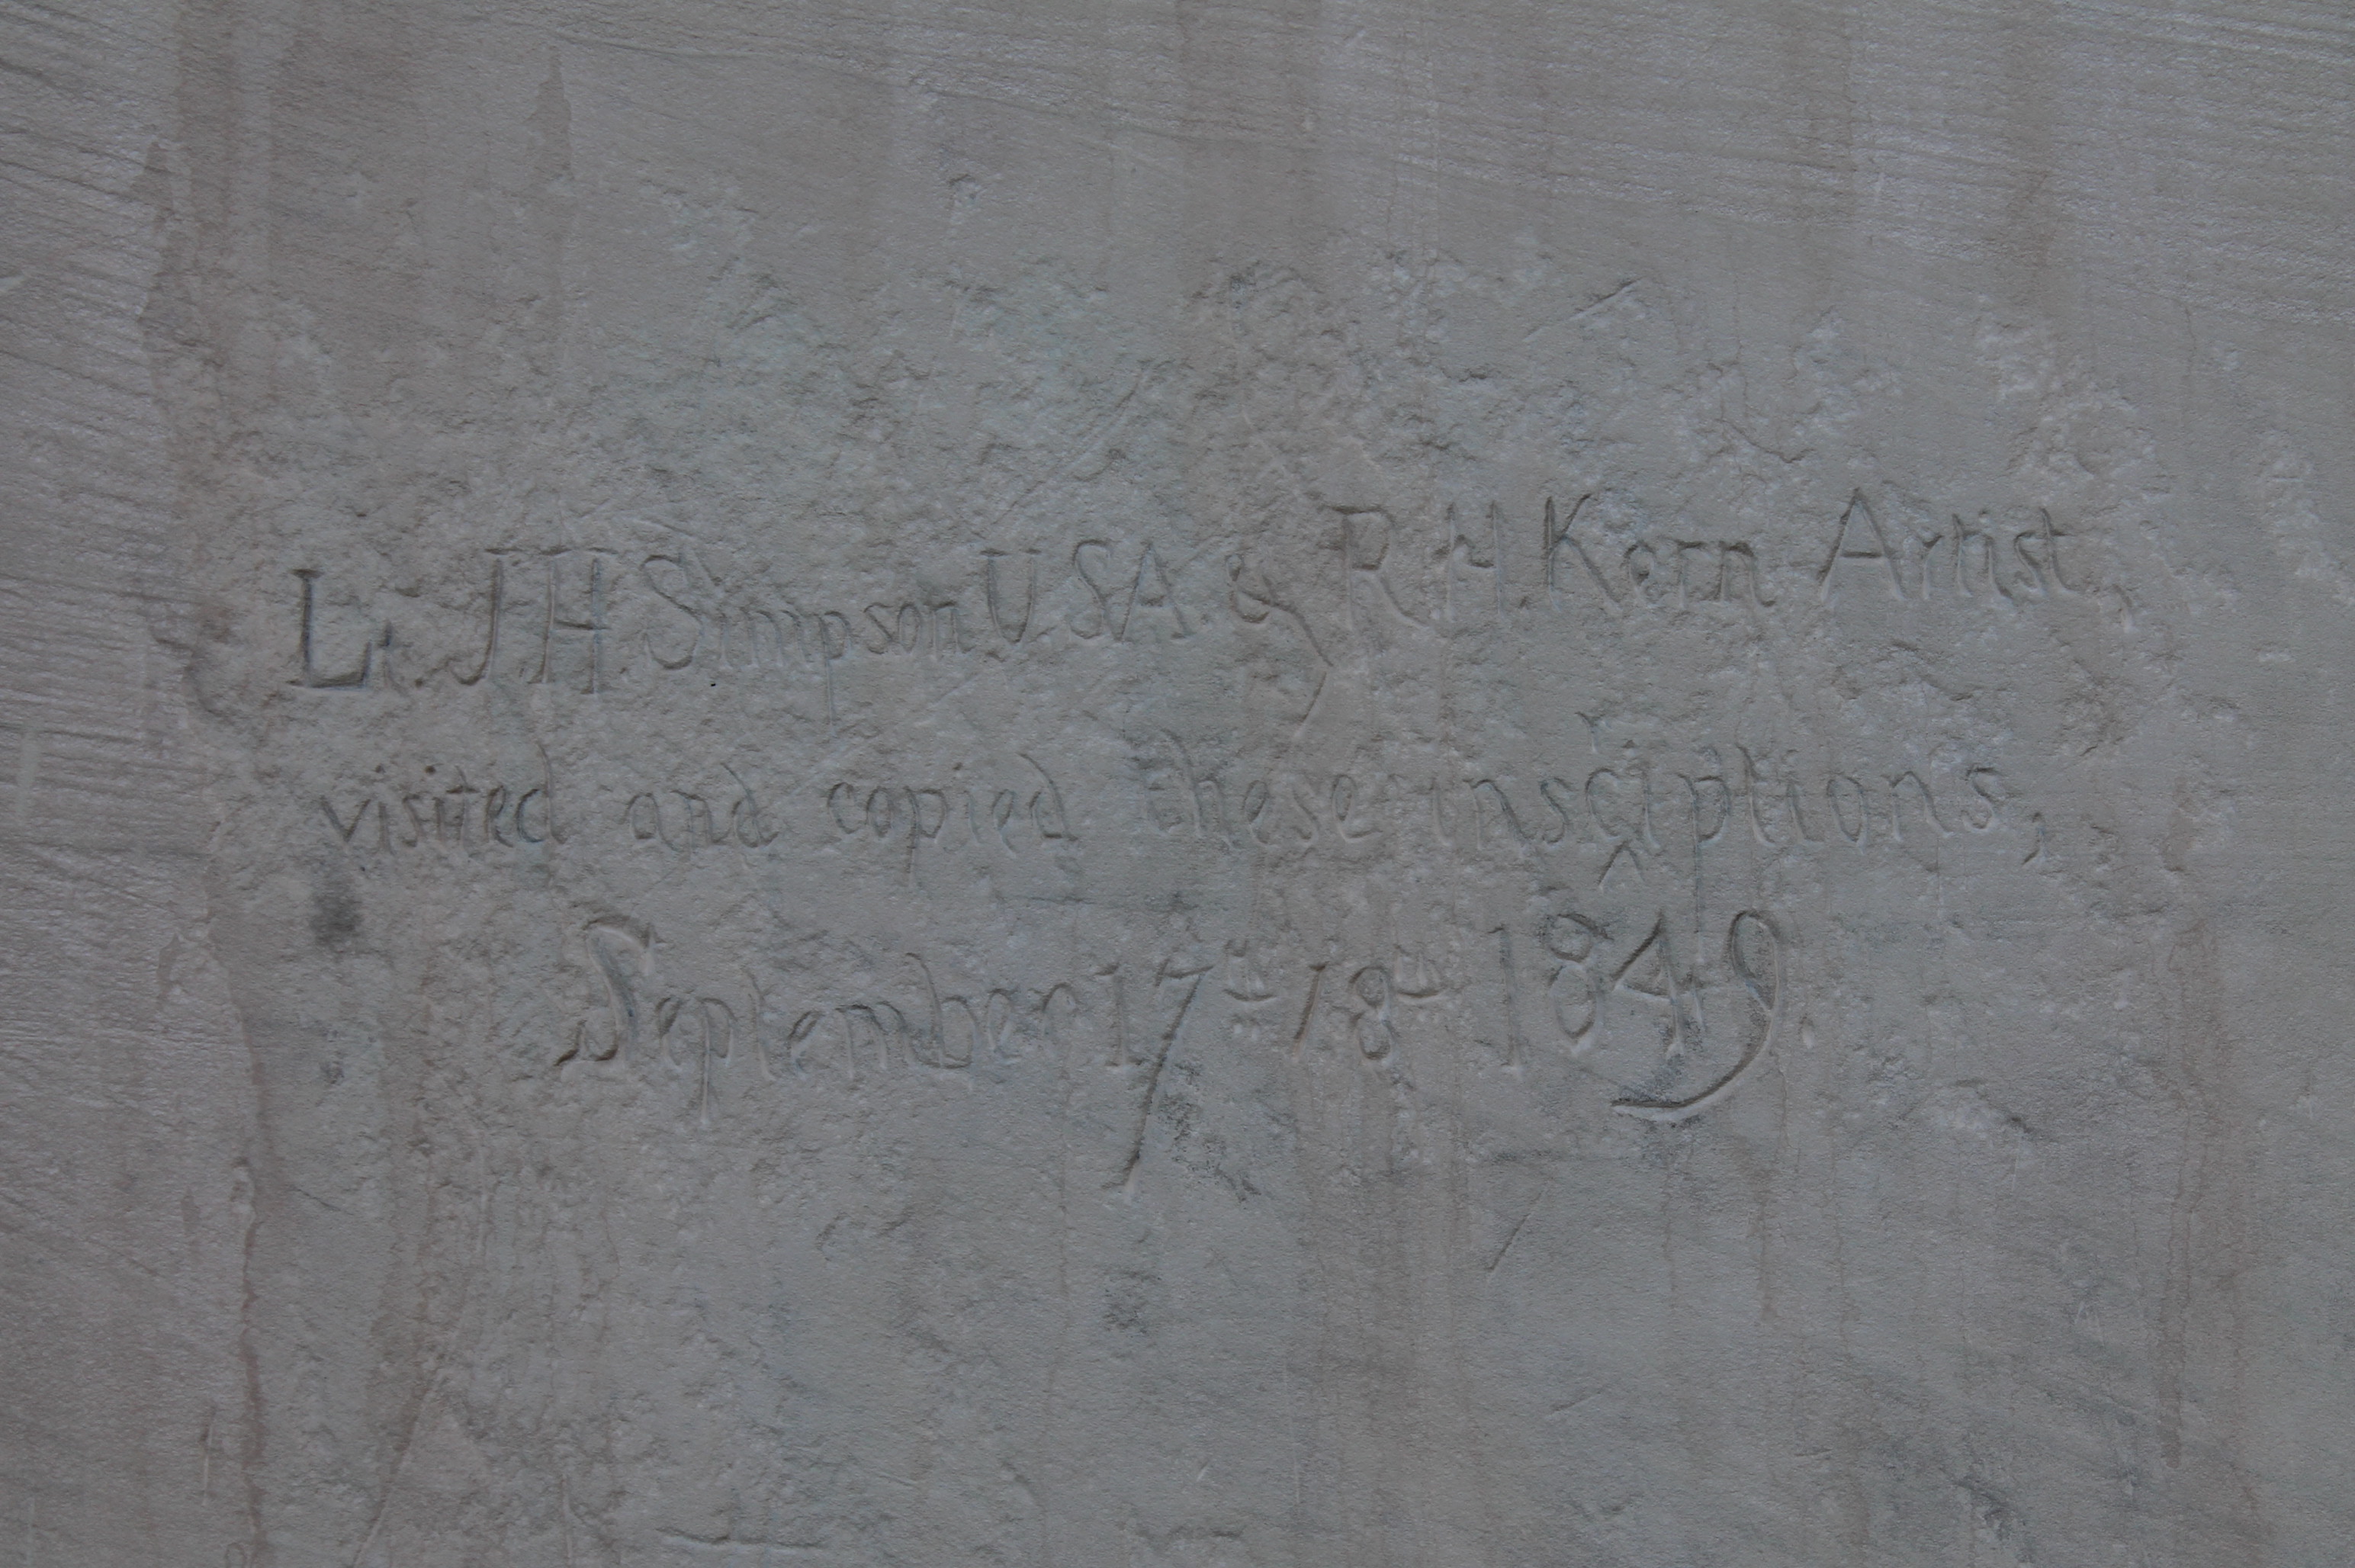 Lt. J.H. Simpson U.S.A. & R.H. Kern Artist,
visited and copied these insc^riptions,
September 17th 18th 1849.